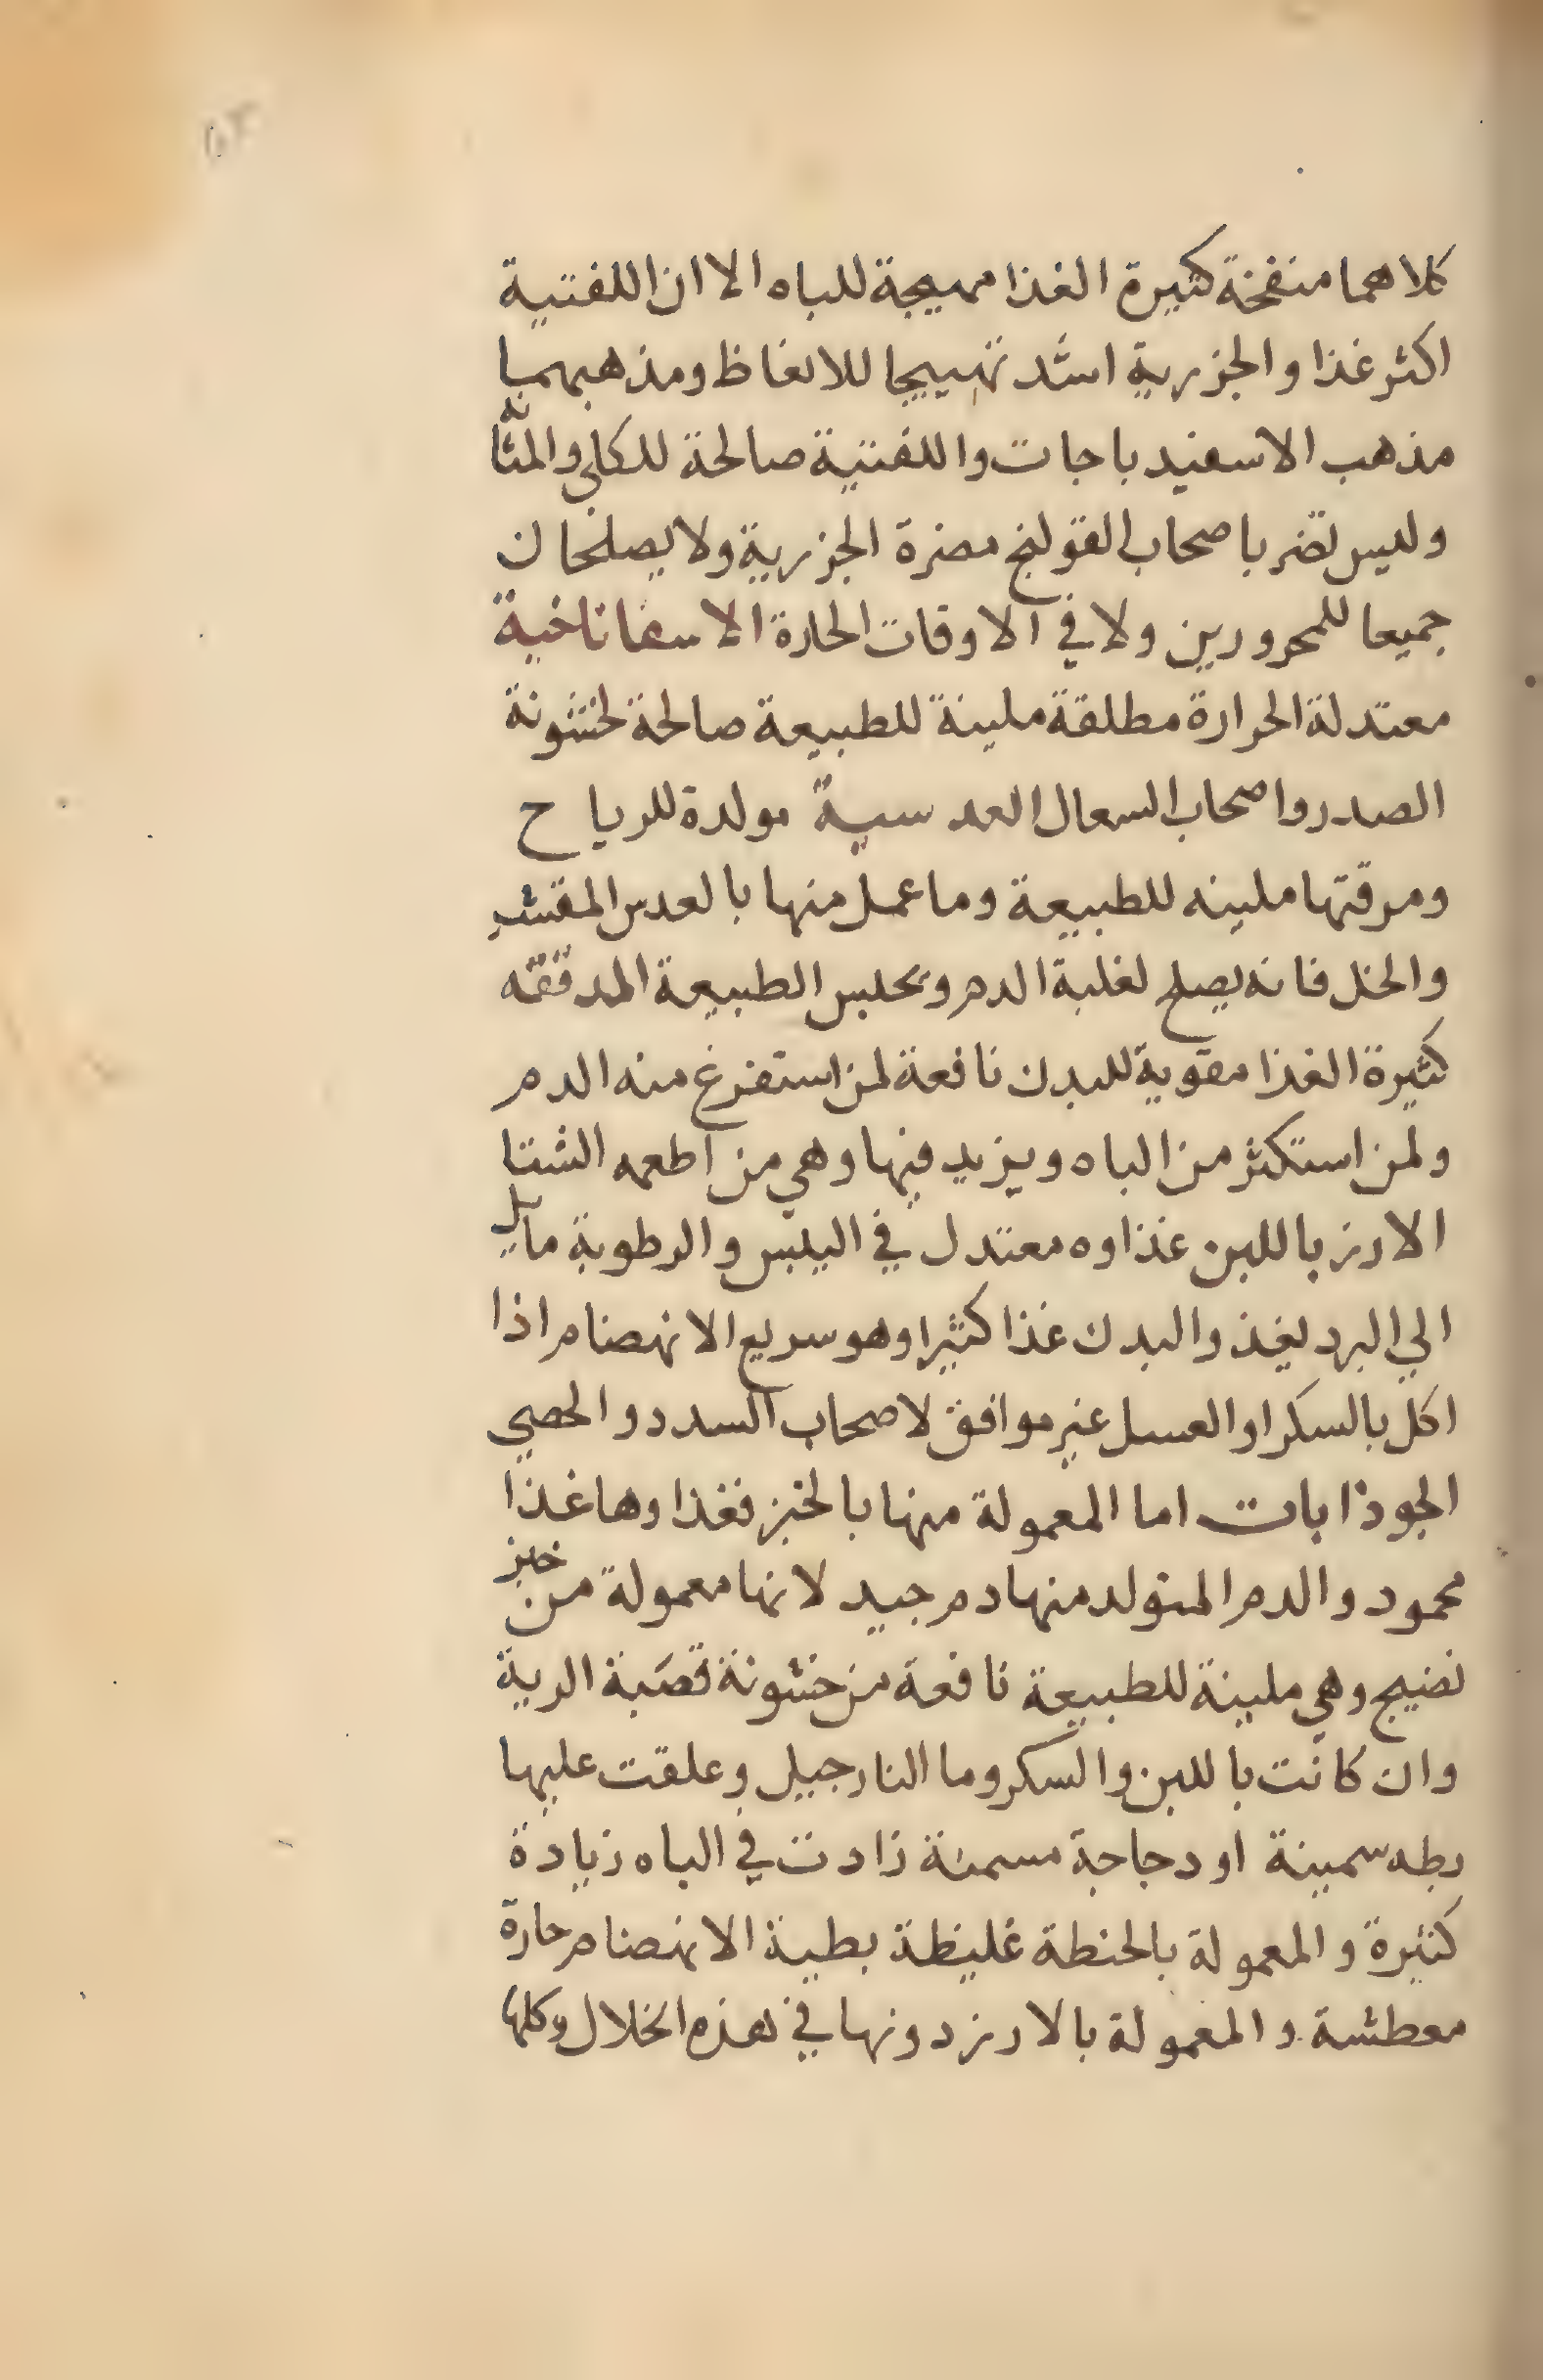 كلاهما منفخة كثيرة الغذا مهيجة للباه الا ان اللفتية
اكثر غذا والجزرية اشد تهييجا للانعاظ ومذهبهما
مذهب الاسفيد باجات واللفتية صالحة للكلي والمثانه
وليس تضر باصحاب القولنج مضرة الجزرية ولا يصلحان
جميعا للمحرورين ولا في الاوقات الحارة الاسفاناخية
معتدلة الحرارة مطلقة ملينة للطبيعة صالحة لخشونة
الصدر واصحاب السعال العدسية مولدة للرياح
ومرقتها ملينه للطبيعة وما عمل منها بالعدس المقشر
والخل فانه يصلح لغلبة الدم ويحبس الطبيعة المدققه
كثيرة الغذا مقوية للبدن نافعة لمن استفرغ منه الدم
ولمن استكثر من الباه ويزيد فيها وهي من اطعمه الشتا
الارز باللبن غذاوه معتدل في اليبس والرطوبة مايل
الي البرد يغذ والبدن غذا كثيرا وهو سريع الانهضام اذا
اكل بالسكر او العسل غير موافق لاصحاب السدد والحصي
الجوذابات اما المعمولة منها بالخبز فغذاوها غذا
محمود والدم المتولد منها دم جيد لانها معمولة من خبز
نضيج وهي ملينة للطبيعة نافعة من خشونة قصبة الرية
وان كانت باللبن والسكر وما النارجيل وعلقت عليها
بطه سمينة او دجاجة مسمنة زادت في الباه زيادة
كثيرة والمعمولة بالحنطة غليظة بطية الانهضام حارة
معطشة والمعمولة بالارز دونها في هذه الخلال وكلها